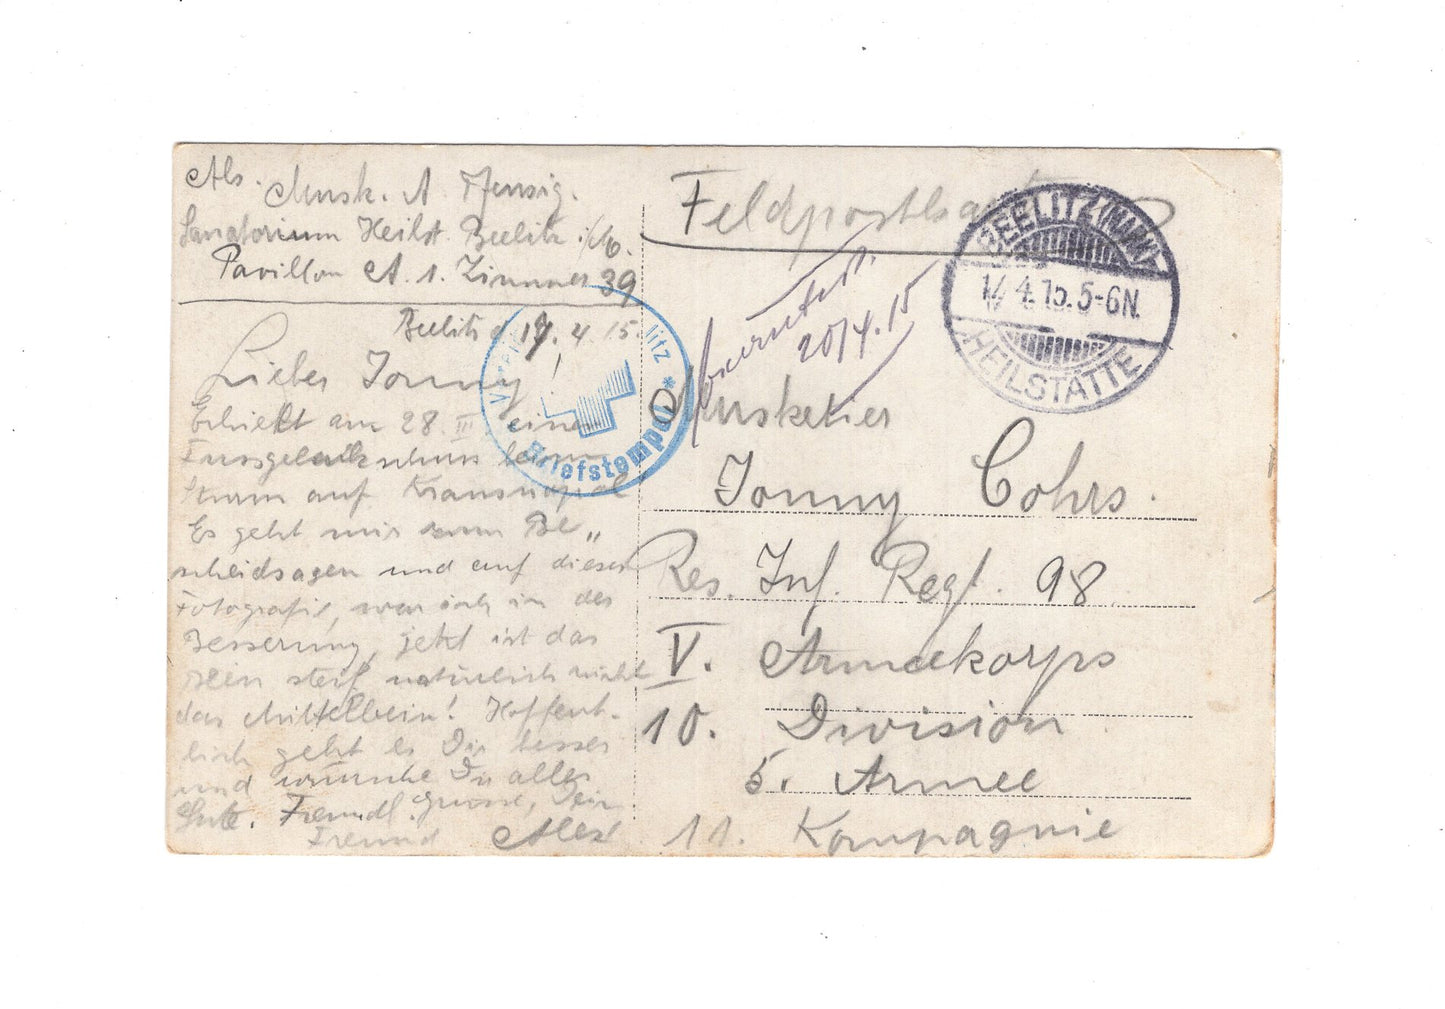 Abs. Musk. A
Sanatorium Heilst. Beelitz i/M.
Pavillon A. 1. Zimmer 39
Beelitz d 14. 4. 15.
Lieber Jonny!
Erhielt am 28. III einen
Fussgelenkschuss beim
Sturm auf
Es geht mir zum Be„
scheidsagen und auf dieser
Fotografie, war ich in der
Besserung, jetzt ist das
Bein steif natürlich nicht
das Mittelbein! Hoffent-
lich geht es Dir besser
und wünsche Dir alles
Gute. Freundl. Grüsse, Dein
Freund Alex
Feldpostkarte
BEELITZ (MARK)
14.4.15.5-6N.
HEILSTÄTTE
20/4.15
Briefstempel *
Musketier
Jonny Cohrs.
Res. Inf. Regt. 98.
V. Armeekorps
10. Division
5. Armee
11. Kompagnie